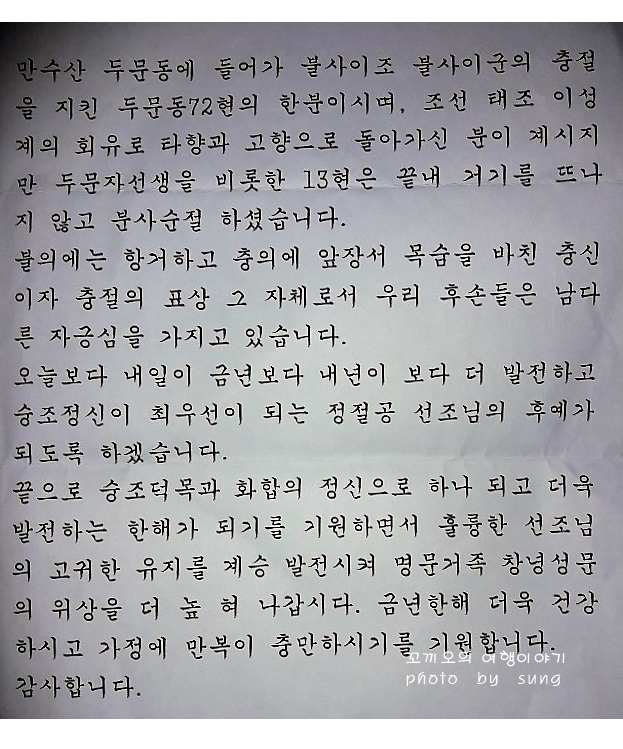 만수산 두문동에 들어가 불사이조 불사이군의 충절
을 지킨 두문동72현의 한분이시며, 조선 태조 이성
계의 회유로 타향과 고향으로 돌아가신 분이 계시지
만 두문자선생을 비롯한 13현은 끝내 거기를 뜨나
지 않고 분사순절 하셨습니다.
불의에는 항거하고 충의에 앞장서 목숨을 바친 충신
이자 충절의 표상 그 자체로서 우리 후손들은 남다
른 자긍심을 가지고 있습니다.
오늘보다 내일이 금년보다 내년이 보다 더 발전하고
숭조정신이 최우선이 되는 정절공 선조님의 후예가
되도록 하겠습니다.
끝으로 숭조덕목과 화합의 정신으로 하나 되고 더욱
발전하는 한해가 되기를 기원하면서 훌륭한 선조님
의 고귀한 유지를 계승 발전시켜 명문거족 창녕성문
의 위상을 더 높 혀 나갑시다. 금년한해 더욱 건강
하시고 가정에 만복이 충만하시기를 기원합니다.
꼬끼오의 여행이야기
photo by sung
감사합니다.